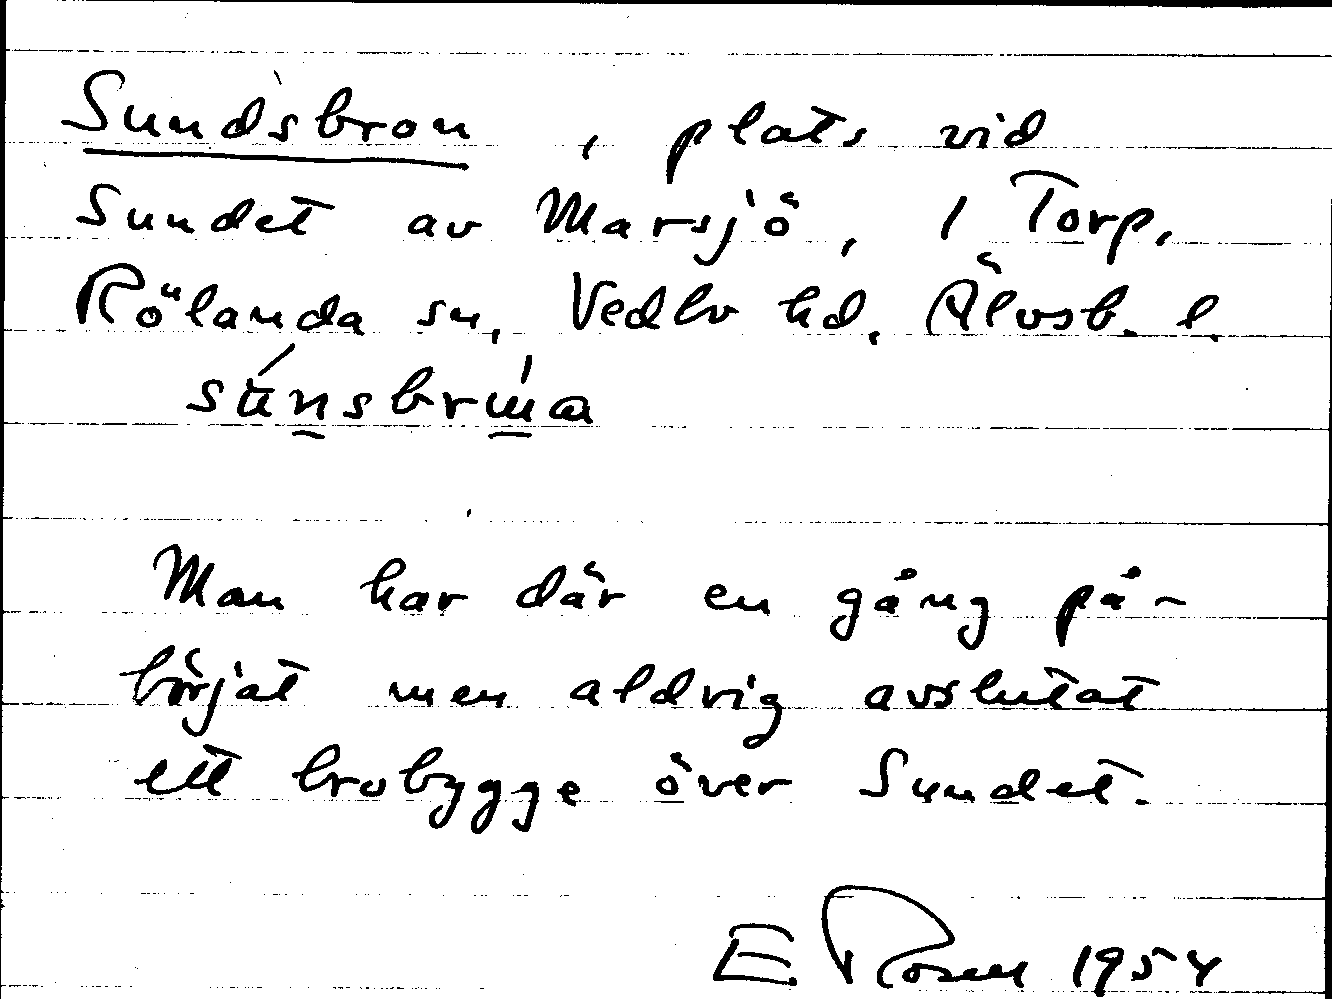 Sundsbron, plats vid
Sundet av Marsjö, 1 Torp,
Rölanda sn, Vedbo hd. Älvsb. l.
Man har där en gång på-
börjat men aldrig avslutat
ett brobygge över Sundet.
E. Rosell 1954